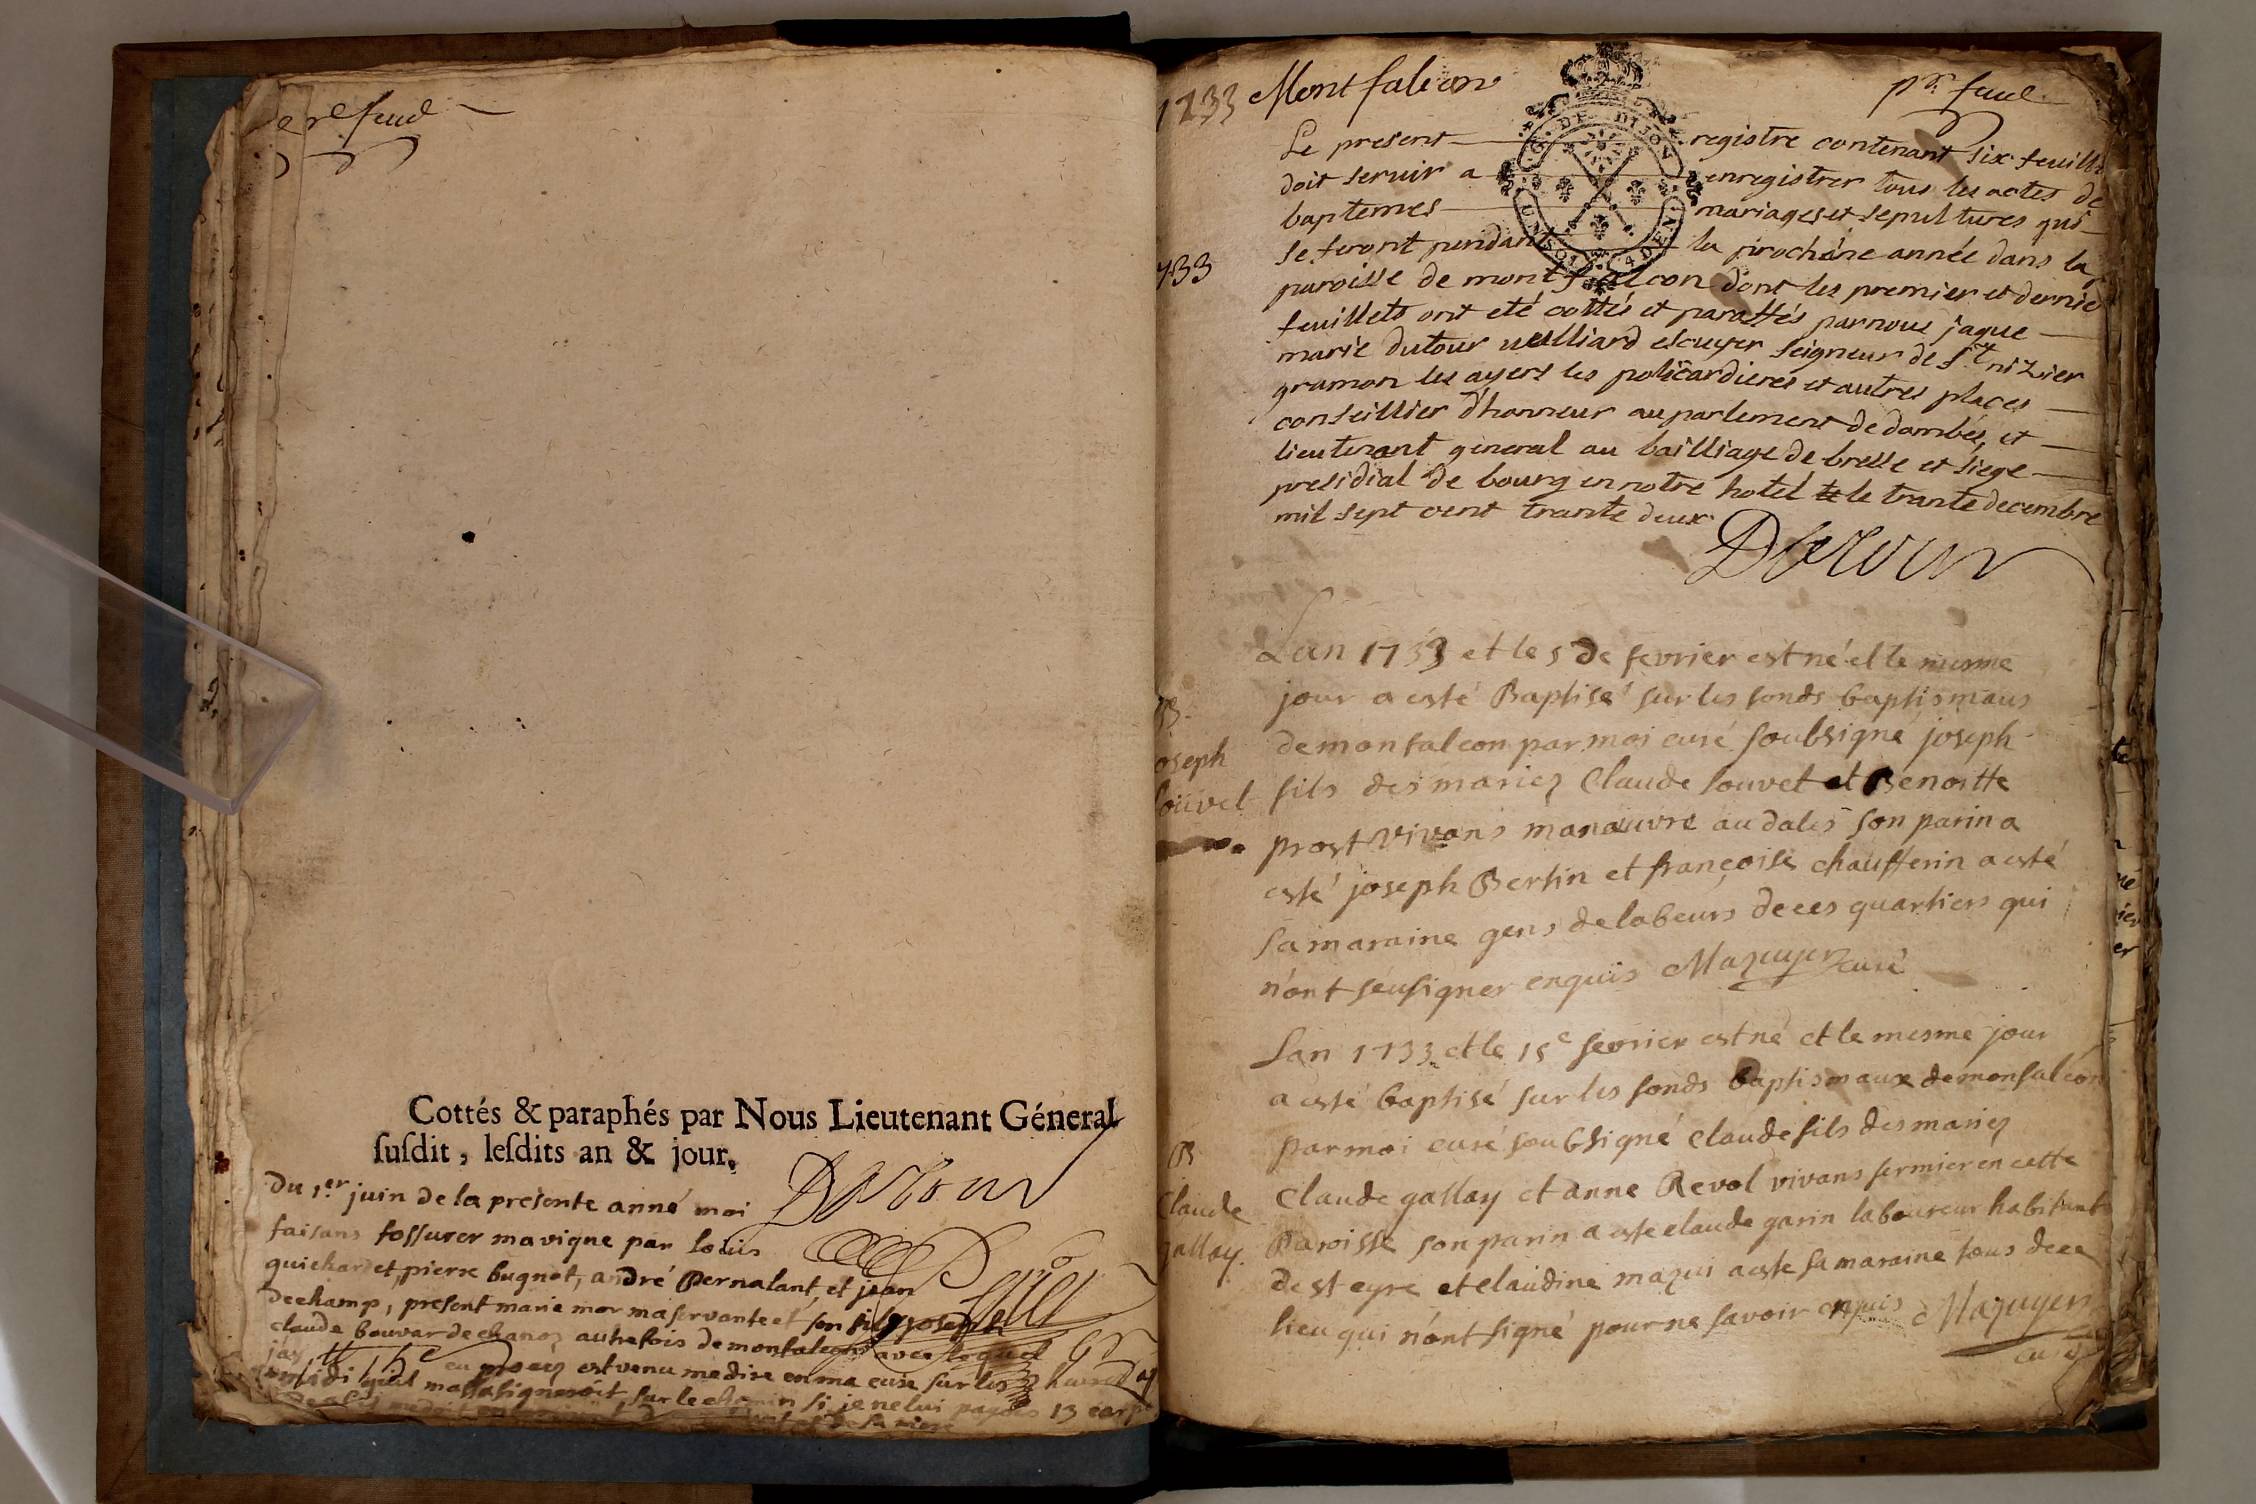 Cottés & paraphés par Nous Lieutenant Géneral
susdit, lesdits an & jour.
Dutour
Du 1.er juin de la presente anné moi
faisans fossurer ma vigne par loüis
guichard et, pierre bugnot, andré Bernalant, et jean
dechamp, present marie mor ma servante et son fils joseph
claude bouvar de chanoz autrefois de montalcon avec lequel
eu procez est venu me dire en ma cure sur les heures
midi quil massasigneroit, sur le chemin si je ne lui payois 13
1733 Montfalcon
pr. feuil
Le present registre contenant six feuillets
doit servir a enregistrer tous les actes de
baptemes mariages et sepultures qui
se feront pendant la prochaine année dans la
1733
paroisse de montfalcon dont les premier et dernier
feuillets ont eté cottés et paraffés par nous jaque
marie dutour uulliard escuyer seigneur de st nizier
gramon les ayers les policardieres et autres places
conseillier d'honneur au parlement de dombes, et
lieutenant general au bailliage de bresse et siege
presidial de bourg en notre hotel le trante decembre
mil sept cent trante deux
Dutour
Lan 1733 et le 5 de fevrier est né et le mesme
jour a esté Baptisé sur les fonds baptismaus
B.
de monfalcon par moi curé soubsigné joseph
joseph
fils des mariez Claude louvet et Benoitte
louvet
prost vivans manœuvre au dales son parin a
esté joseph Bertin et françoise chaufferin a esté
sa maraine gens de labeurs de ces quartiers qui
n'ont séu signer enquis Mazuyer curé
Lan 1733 et le 15e fevrier est né et le mesme jour
a esté baptisé sur les fonds baptismaux de monfalcon
par moi curé soubsigné claude fils des mariez
B
claude gallay et anne Revol vivans fermier en cette
Claude
Paroisse son parin a este claude garin laboureur habitant
gallay.
de st eyre et claudine mazui a este sa maraine tous de ce
lieu qui n'ont signé pour ne savoir enquis Mazuyer
curé